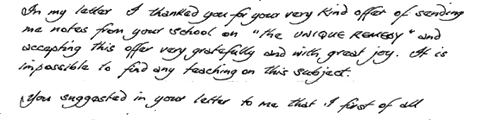 In my letter I thanked you for your very kind offer of sending
me notes from your school on "the UNIQUE REMEDY" and
accepting this offer very gratefully and with great joy. It is
impossible to find any teaching on this subject.
You suggested in your letter to me that I first of all